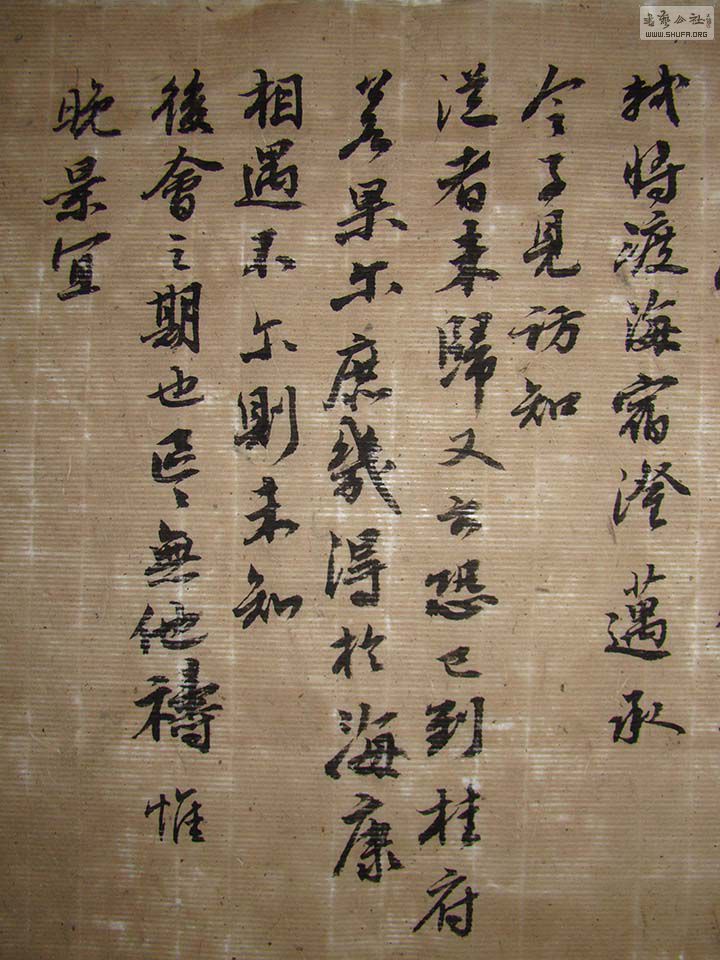 書藝公社
WWW.SHUFA.ORG
軾將渡海宿澄邁承
令子見訪知
從者未歸又云恐已到桂府
若果尔庶幾得於海康
相遇不尔則未知
後會之期也區〻無他禱惟
晚景宜